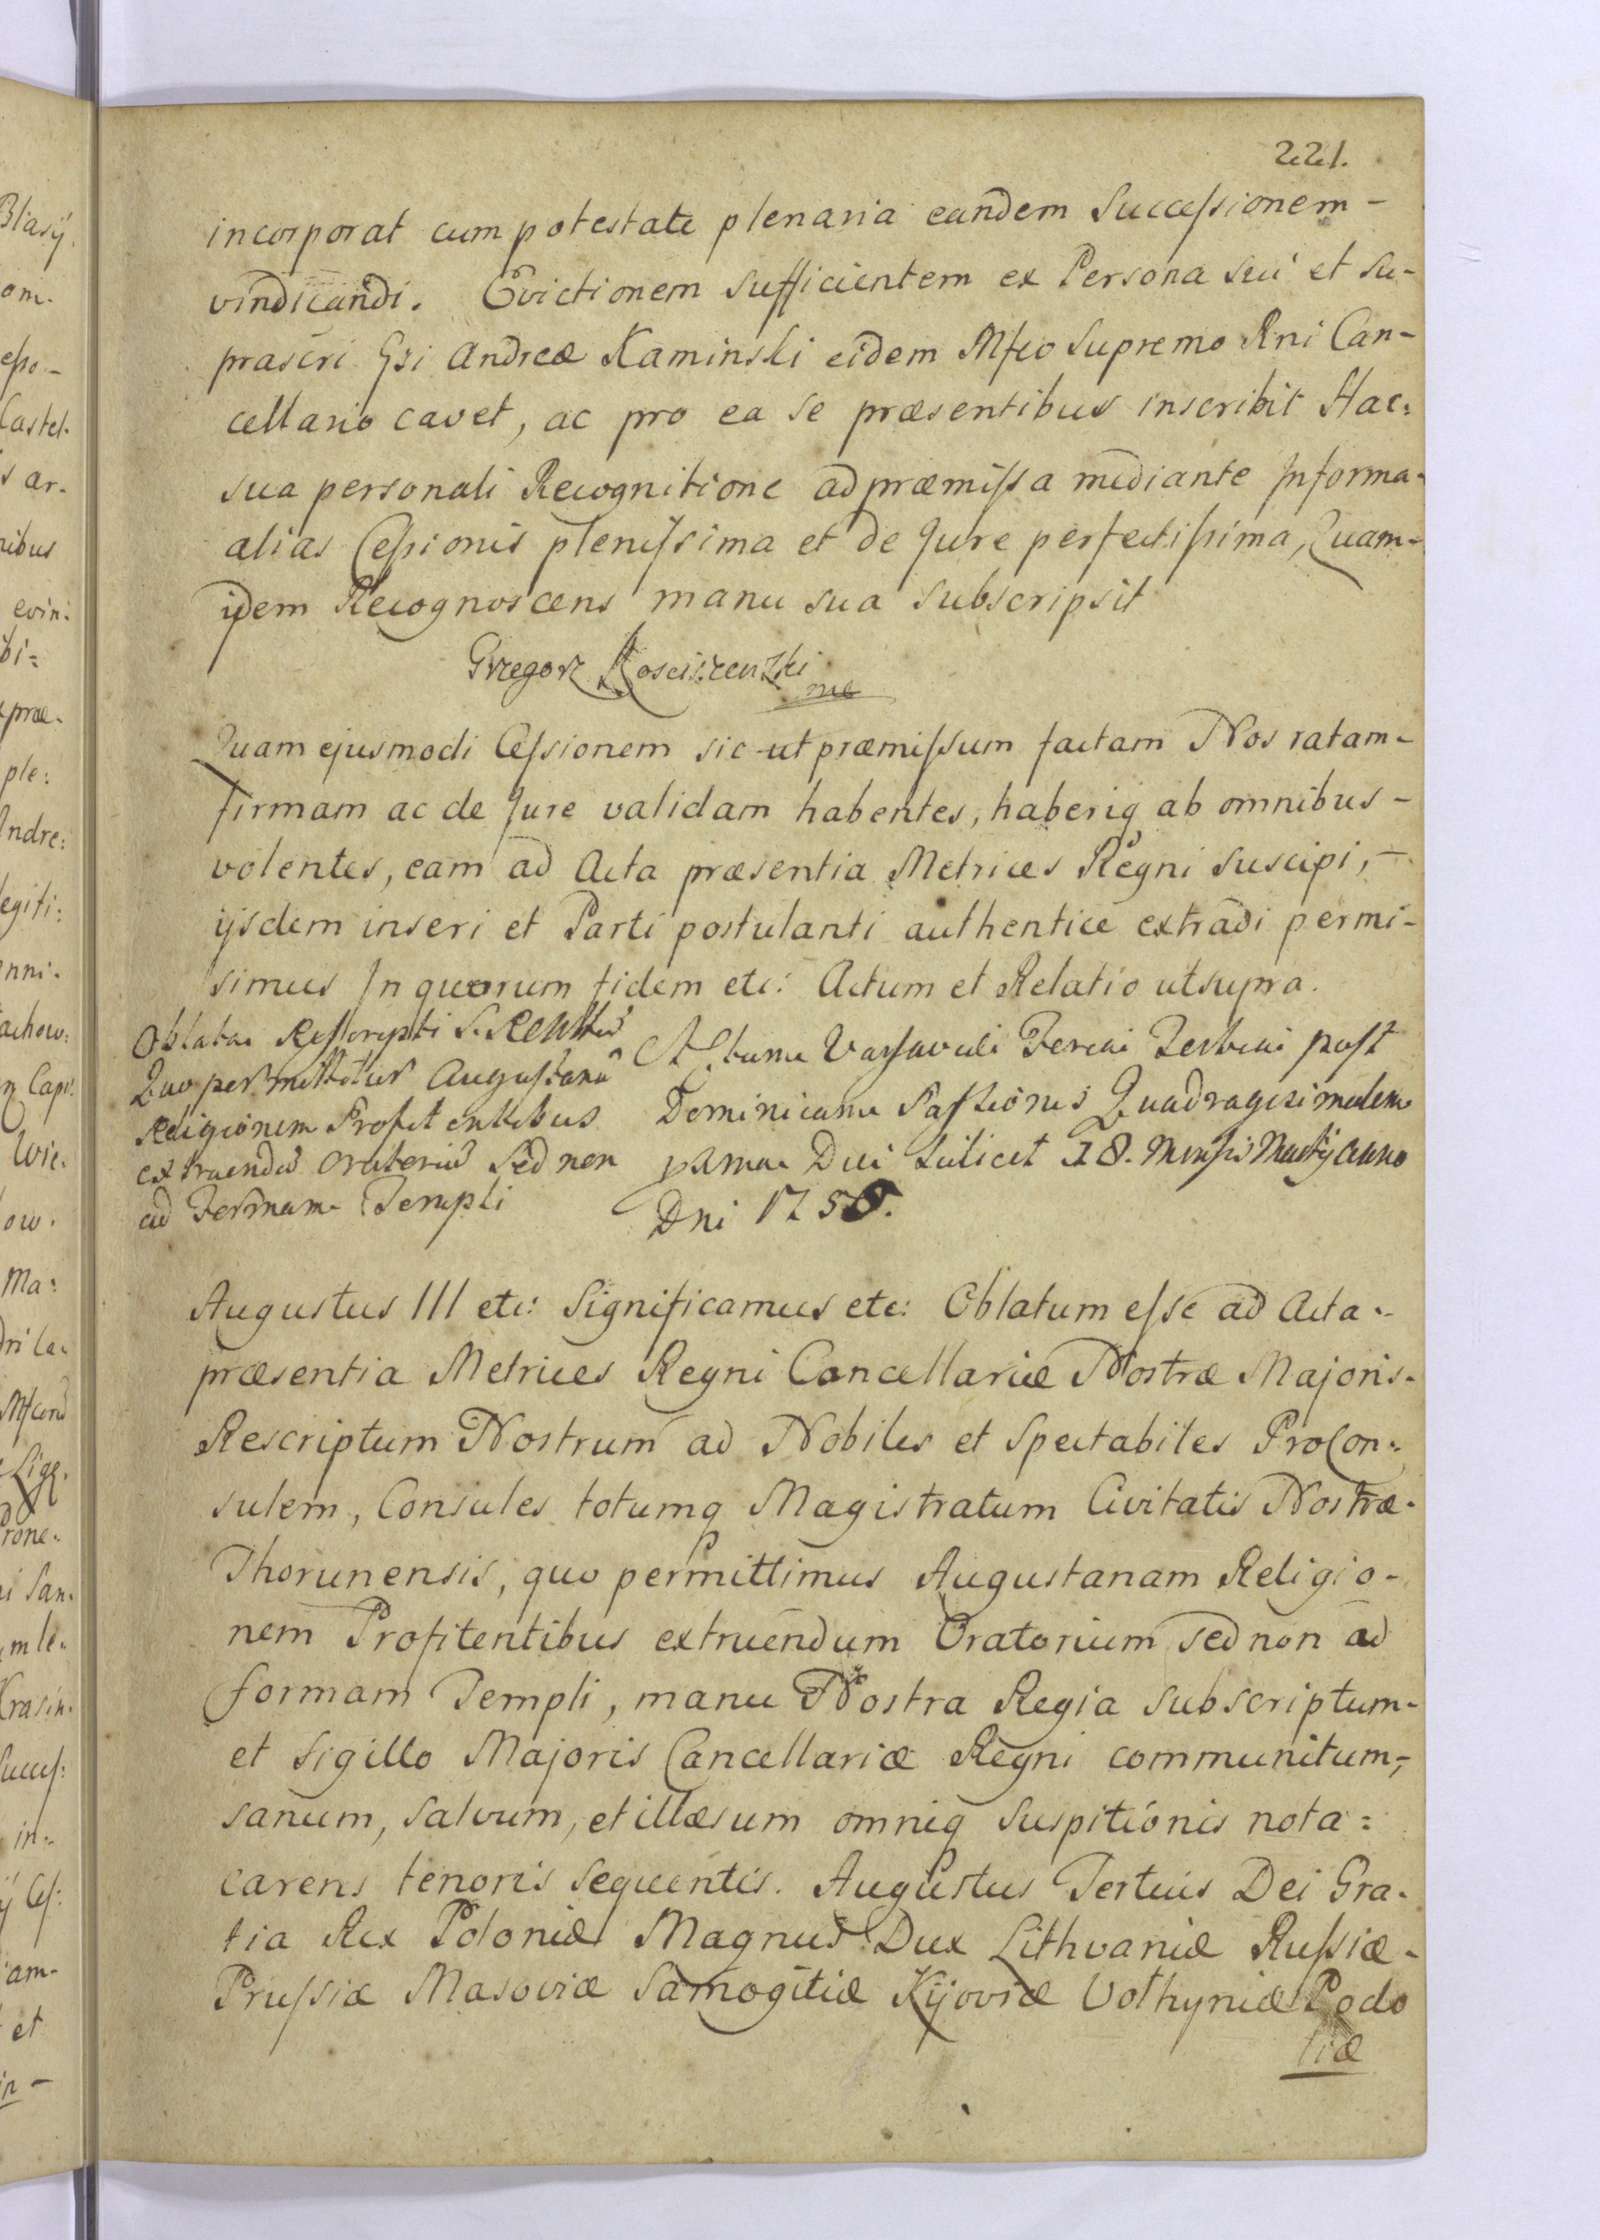 221.
incorporat cum potestate plenaria eandem Successionem-
vindicandi. Evictionem sufficientem ex Persona sui et su-
prascri Gsi Andreæ Kaminski eidem Mfco Supremo Rni Can-
cellario cavet, ac pro ea se præsentibus inscribit Hac:
sua personali Recognitione ad præmissa mediante Informa-
alias Cessionis plenissima et de Jure perfectissima, Quam-
idem Recognoscens manu sua subscripsit
Grzegorz
Quam ejusmodi Cessionem sic ut præmissum factam Nos ratam-
firmam ac de Jure validam habentes, haberiq ab omnibus-
volentes, eam ad Acta præsentia Metrices Regni suscipi,-
ijsdem inseri et Parti postulanti authentice extradi permi-
simus In quorum fidem etc: Actum et Relatio ut supra.
Oblata Rescripti S. R.
Quo permittitur Augustanã
Religionem Profitentibus
extruendũ Oratoriũ Sed non
ad Formam Templi
Actum Varsaviæ Feria Tertia post
Dominicam Passionis Quadragesimalem
Die scilicet 18. Mensis Martij Anno
Dni 1758.
Augustus III etc: Significamus etc: Oblatum esse ad Acta-
præsentia Metrices Regni Cancellariæ Nostræ Majoris-
Rescriptum Nostrum ad Nobiles et Spectabiles ProCon-
sulem, Consules totumq Magistratum Civitatis Nostræ-
Thorunensis, quo permittimus Augustanam Religio-
nem Profitentibus extruendum Oratorium sed non ad
formam Templi, manu Nostra Regia subscriptum-
et Sigillo Majoris Cancellariæ Regni communitum,-
sanum, salvum, et illæsum omniq suspitionis nota:
carens tenoris sequentis. Augustus Tertius Dei Gra-
tia Rex Poloniæ Magnus Dux Lithvaniæ Russiæ-
Prussiæ Masoviæ Samogitiæ Kijoviæ Volhyniæ Podo
liæ